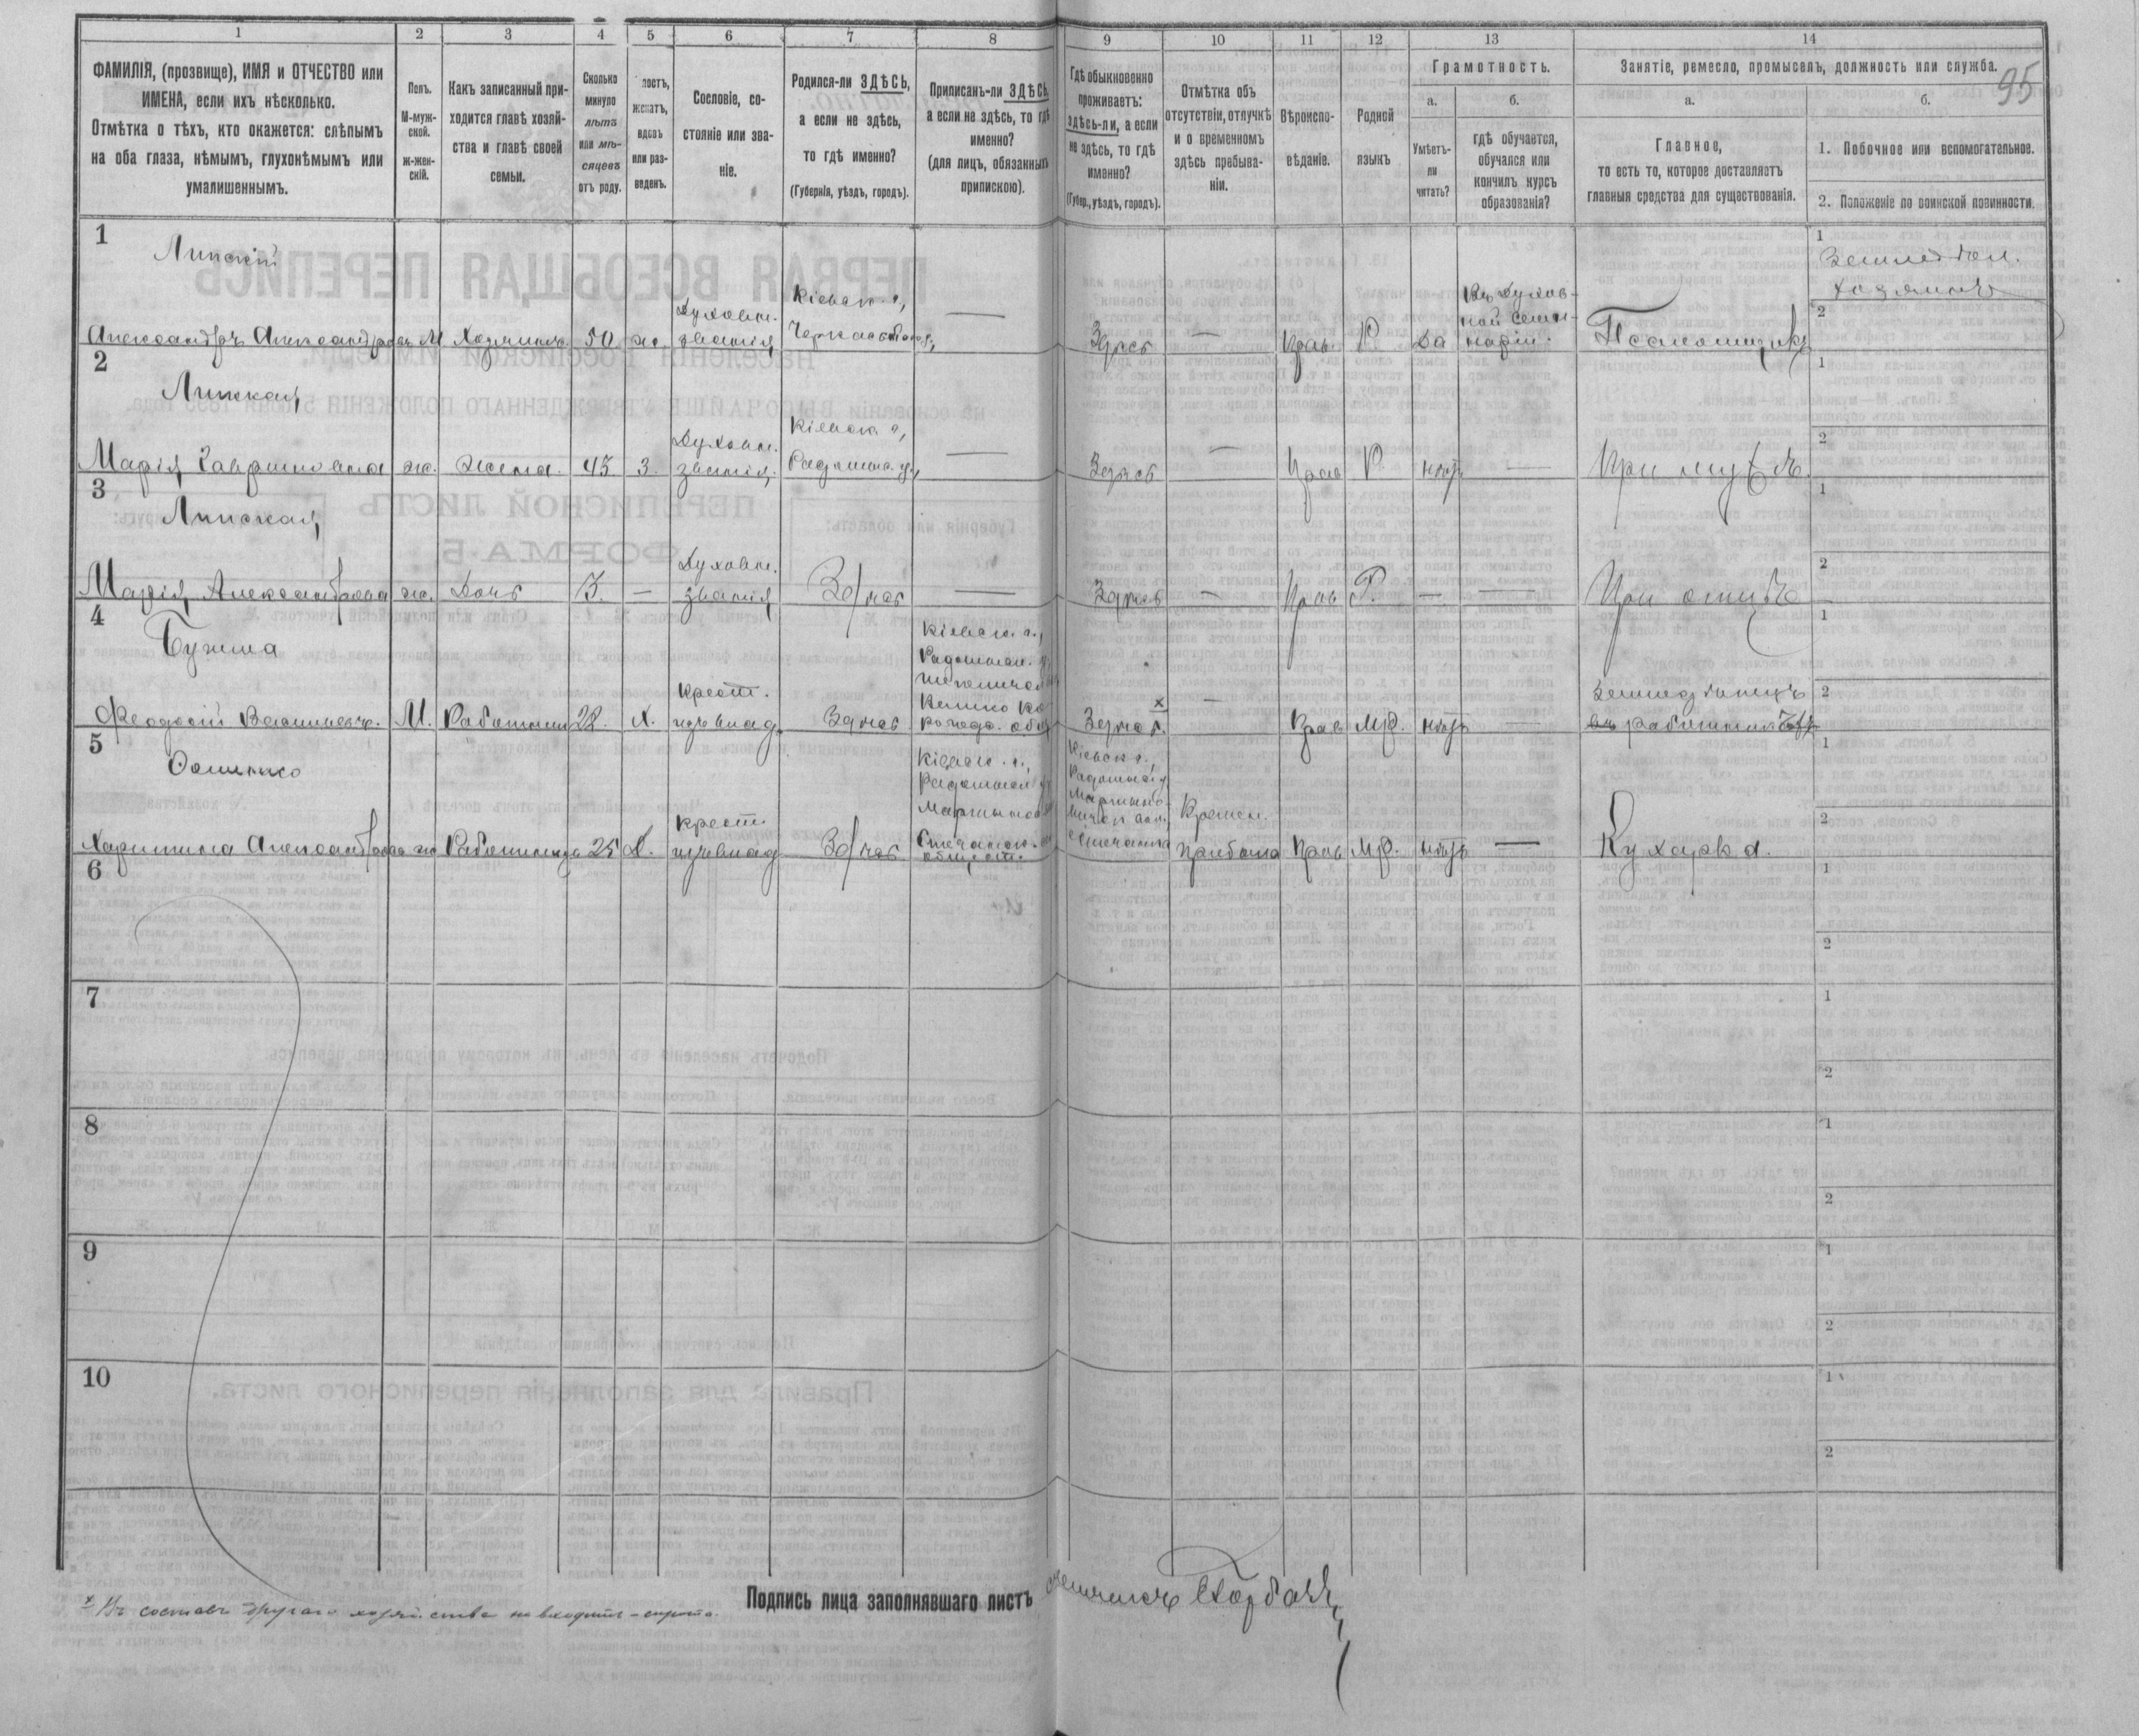 95
1 2 3 4 5 6 7 8 9 10 11 12 13 14
ФАМИЛІЯ, (прозвище), ИМЯ и ОТЧЕСТВО или
ИМЕНА, если ихъ нѣсколько.
Отмѣтка о тѣхъ, кто окажется: слѣпымъ
на оба глаза, нѣмымъ, глухонѣмымъ или
умалишеннымъ.
Полъ.
М-муж-
ской.
ж-жен-
скій.
Какъ записанный при-
ходится главѣ хозяй-
ства и главѣ своей
семьи.
Сколько
минуло
лѣтъ
или мѣ-
сяцевъ
отъ роду.
лостъ,
женатъ,
вдовъ
или раз-
веденъ.
Сословіе, со-
стояніе или зва-
ніе.
Родился-ли ЗДѢСЬ,
а если не здѣсь,
то гдѣ именно?
(Губернія, уѣздъ, городъ).
Приписанъ-ли ЗДѢСЬ,
а если не здѣсь, то гдѣ
именно?
(для лицъ, обязанныхъ
припискою).
Гдѣ обыкновенно
проживаетъ:
здѣсь-ли, а если
не здѣсь, то гдѣ
именно?
(Губер., уѣздъ, городъ).
Отмѣтка объ
отсутствіи, отлучкѣ
и о временномъ
здѣсь пребыва-
ніи.
Вѣроиспо-
вѣданіе.
Родной
языкъ
Грамотность.
а.
Умѣетъ-
ли
читать?
б.
гдѣ обучается,
обучался или
кончилъ курсъ
образованія?
Занятіе, ремесло, промыселъ, должность или служба.
а.
Главное,
то есть то, которое доставляетъ
главныя средства для существованія.
б.
1. Побочное или вспомогательное.
2. Положеніе по воинской повинности.
1
Липскій
Александръ Александровъ М Хозяинъ 50 ж. Духовн. званія Кіевск. г., Черкасск. — Здѣсь — Прав. Р. Да Въ Духов-
ной Семи-
наріи. Псаломщикъ
1 Земледѣл.
хозяинъ
2
2
Липская
Марія Гавриловна ж. Жена. 45 З. Духовн. званія Кіевск. г., Радомыс. у. — Здѣсь — Прав. Р. нѣтъ — При мужѣ.
1
2
3
Липская
Марія Александровна ж. Дочь 3. — Духовн. званія Здѣсь — Здѣсь — Прав Р. — — При отцѣ
1
2
4
Феодосій Васильевъ. М. Работникъ 28. Х. Крест. изъ влад. Здѣсь Кіевск. г.,
Радомысл. у. Здѣсь — Прав. Мр. нѣтъ — Земледѣлецъ
1
2
5
Харитина Александрова ж Работница 25 Х. Крест. изъ влад Здѣсь Кіевск. г.,
Радомысл. у Кіевск г.,
Радомысл у Времен. Прав Мр. нѣтъ — Кухарка.
1
2
6
1
2
7
1
2
8
1
2
9
1
2
10
1
2
х Въ составъ другаго хозяйства не входитъ – сирота.
Подпись лица заполнявшаго листъ